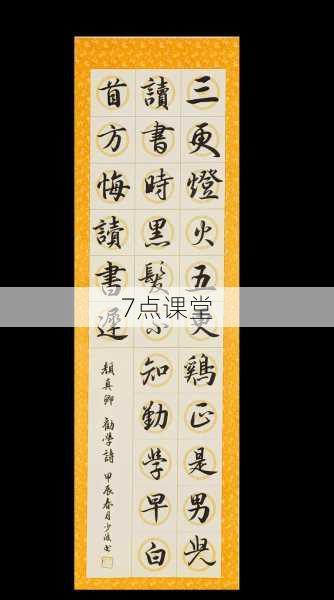 三更燈火五更鷄正是男兒
讀書時黑髮不知勤學早白
首方悔讀書遲
顏真卿 勸學詩 甲辰春月少 书
7点课堂